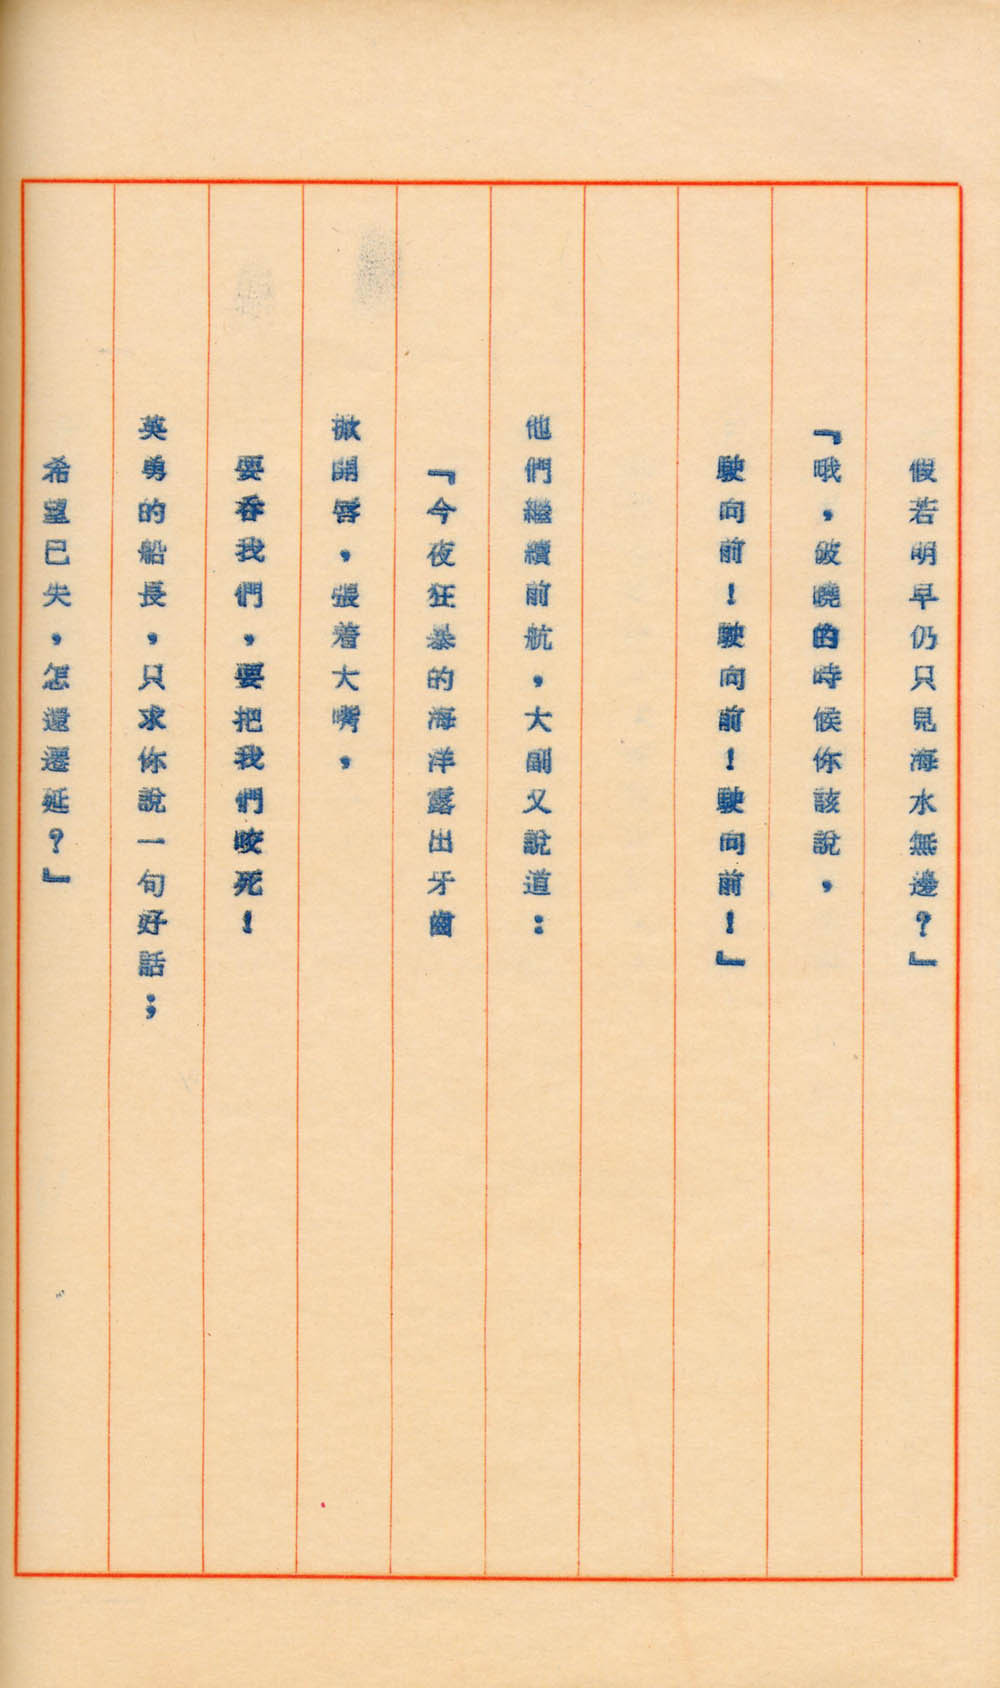 假若明早仍只見海水無邊？』
『哦，破曉的時候你該說，
駛向前！駛向前！駛向前！』
他們繼續前航，大副又說道：
『今夜狂暴的海洋露出牙齒
掀開唇，張着大嘴，
要吞我們，要把我們咬死！
英勇的船長，只求你說一句好話；
希望已失，怎還遷延？』